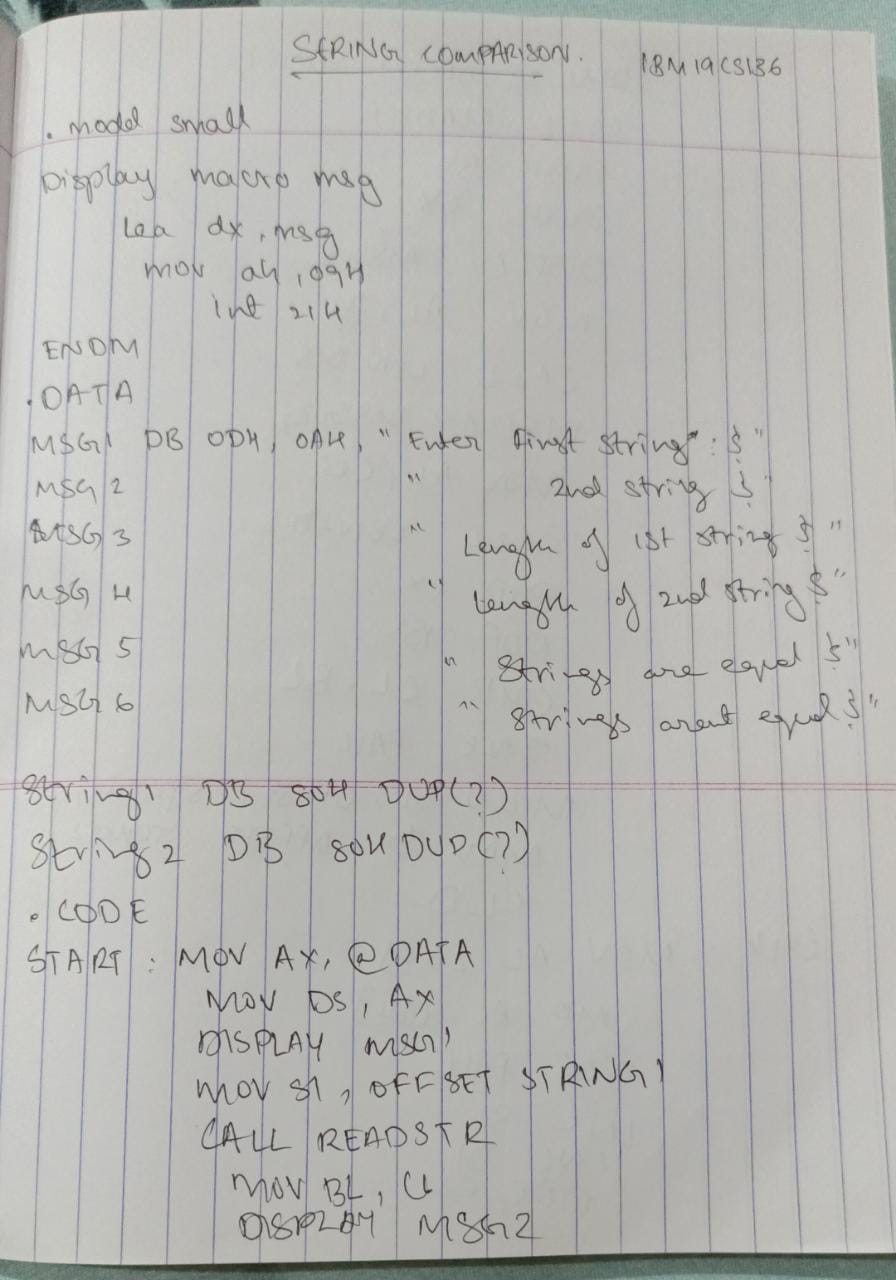 STRING COMPARISON. 1BM19CS136
. model small
Display macro msg
Lea dx, msg
mov ah, 09H
int 21H
ENDM
.DATA
MSG1 DB 0DH, 0AH, " Enter first string : $"
MSG 2 " 2nd string $"
MSG 3 " Length of 1st string $ "
MSG 4 " Length of 2nd string $"
MSG 5 " Strings are equal $"
MSG 6 " Strings arent equal $"
String1 DB 80H DUP(?)
String 2 DB 80H DUP(?)
. CODE
START : MOV AX, @DATA
MOV DS, AX
DISPLAY MSG1
MOV SI, OFFSET STRING1
CALL READSTR
MOV BL, CL
DISPLAY MSG2